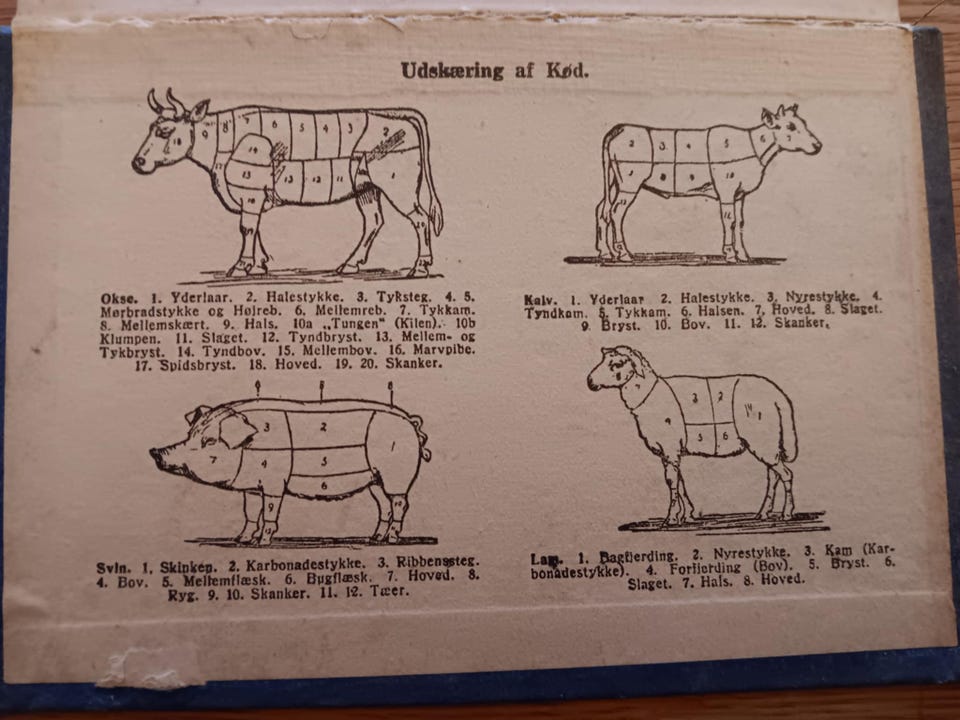 Udskæring af Kød.
Okse. 1. Yderlaar. 2. Halestykke. 3. Tyksteg. 4. 5.
Mørbradstykke og Højreb. 6. Mellemreb. 7. Tykkam.
8. Mellemskært. 9. Hals. 10a „Tungen“ (Kilen). 10b
Klumpen. 11. Slaget. 12. Tyndbryst. 13. Mellem- og
Tykbryst. 14. Tyndbov. 15. Mellembov. 16. Marvpibe.
17. Spidsbryst. 18. Hoved. 19. 20. Skanker.
Kalv. 1. Yderlaar 2. Halestykke. 3. Nyrestykke. 4.
Tyndkam. 5. Tykkam. 6. Halsen. 7, Hoved. 8. Slaget.
9. Bryst. 10. Bov. 11. 12. Skanker.
Svin. 1. Skinken. 2. Karbonadestykke. 3. Ribbenssteg.
4. Bov. 5. Mellemflæsk. 6. Bugflæsk. 7. Hoved. 8.
Ryg. 9. 10. Skanker. 11. 12. Tæer.
Lam. 1. Bagfjerding. 2. Nyrestykke. 3. Kam (Kar-
bonadestykke). 4. Forfjerding (Bov). 5. Bryst. 6.
Slaget. 7. Hals. 8. Hoved.